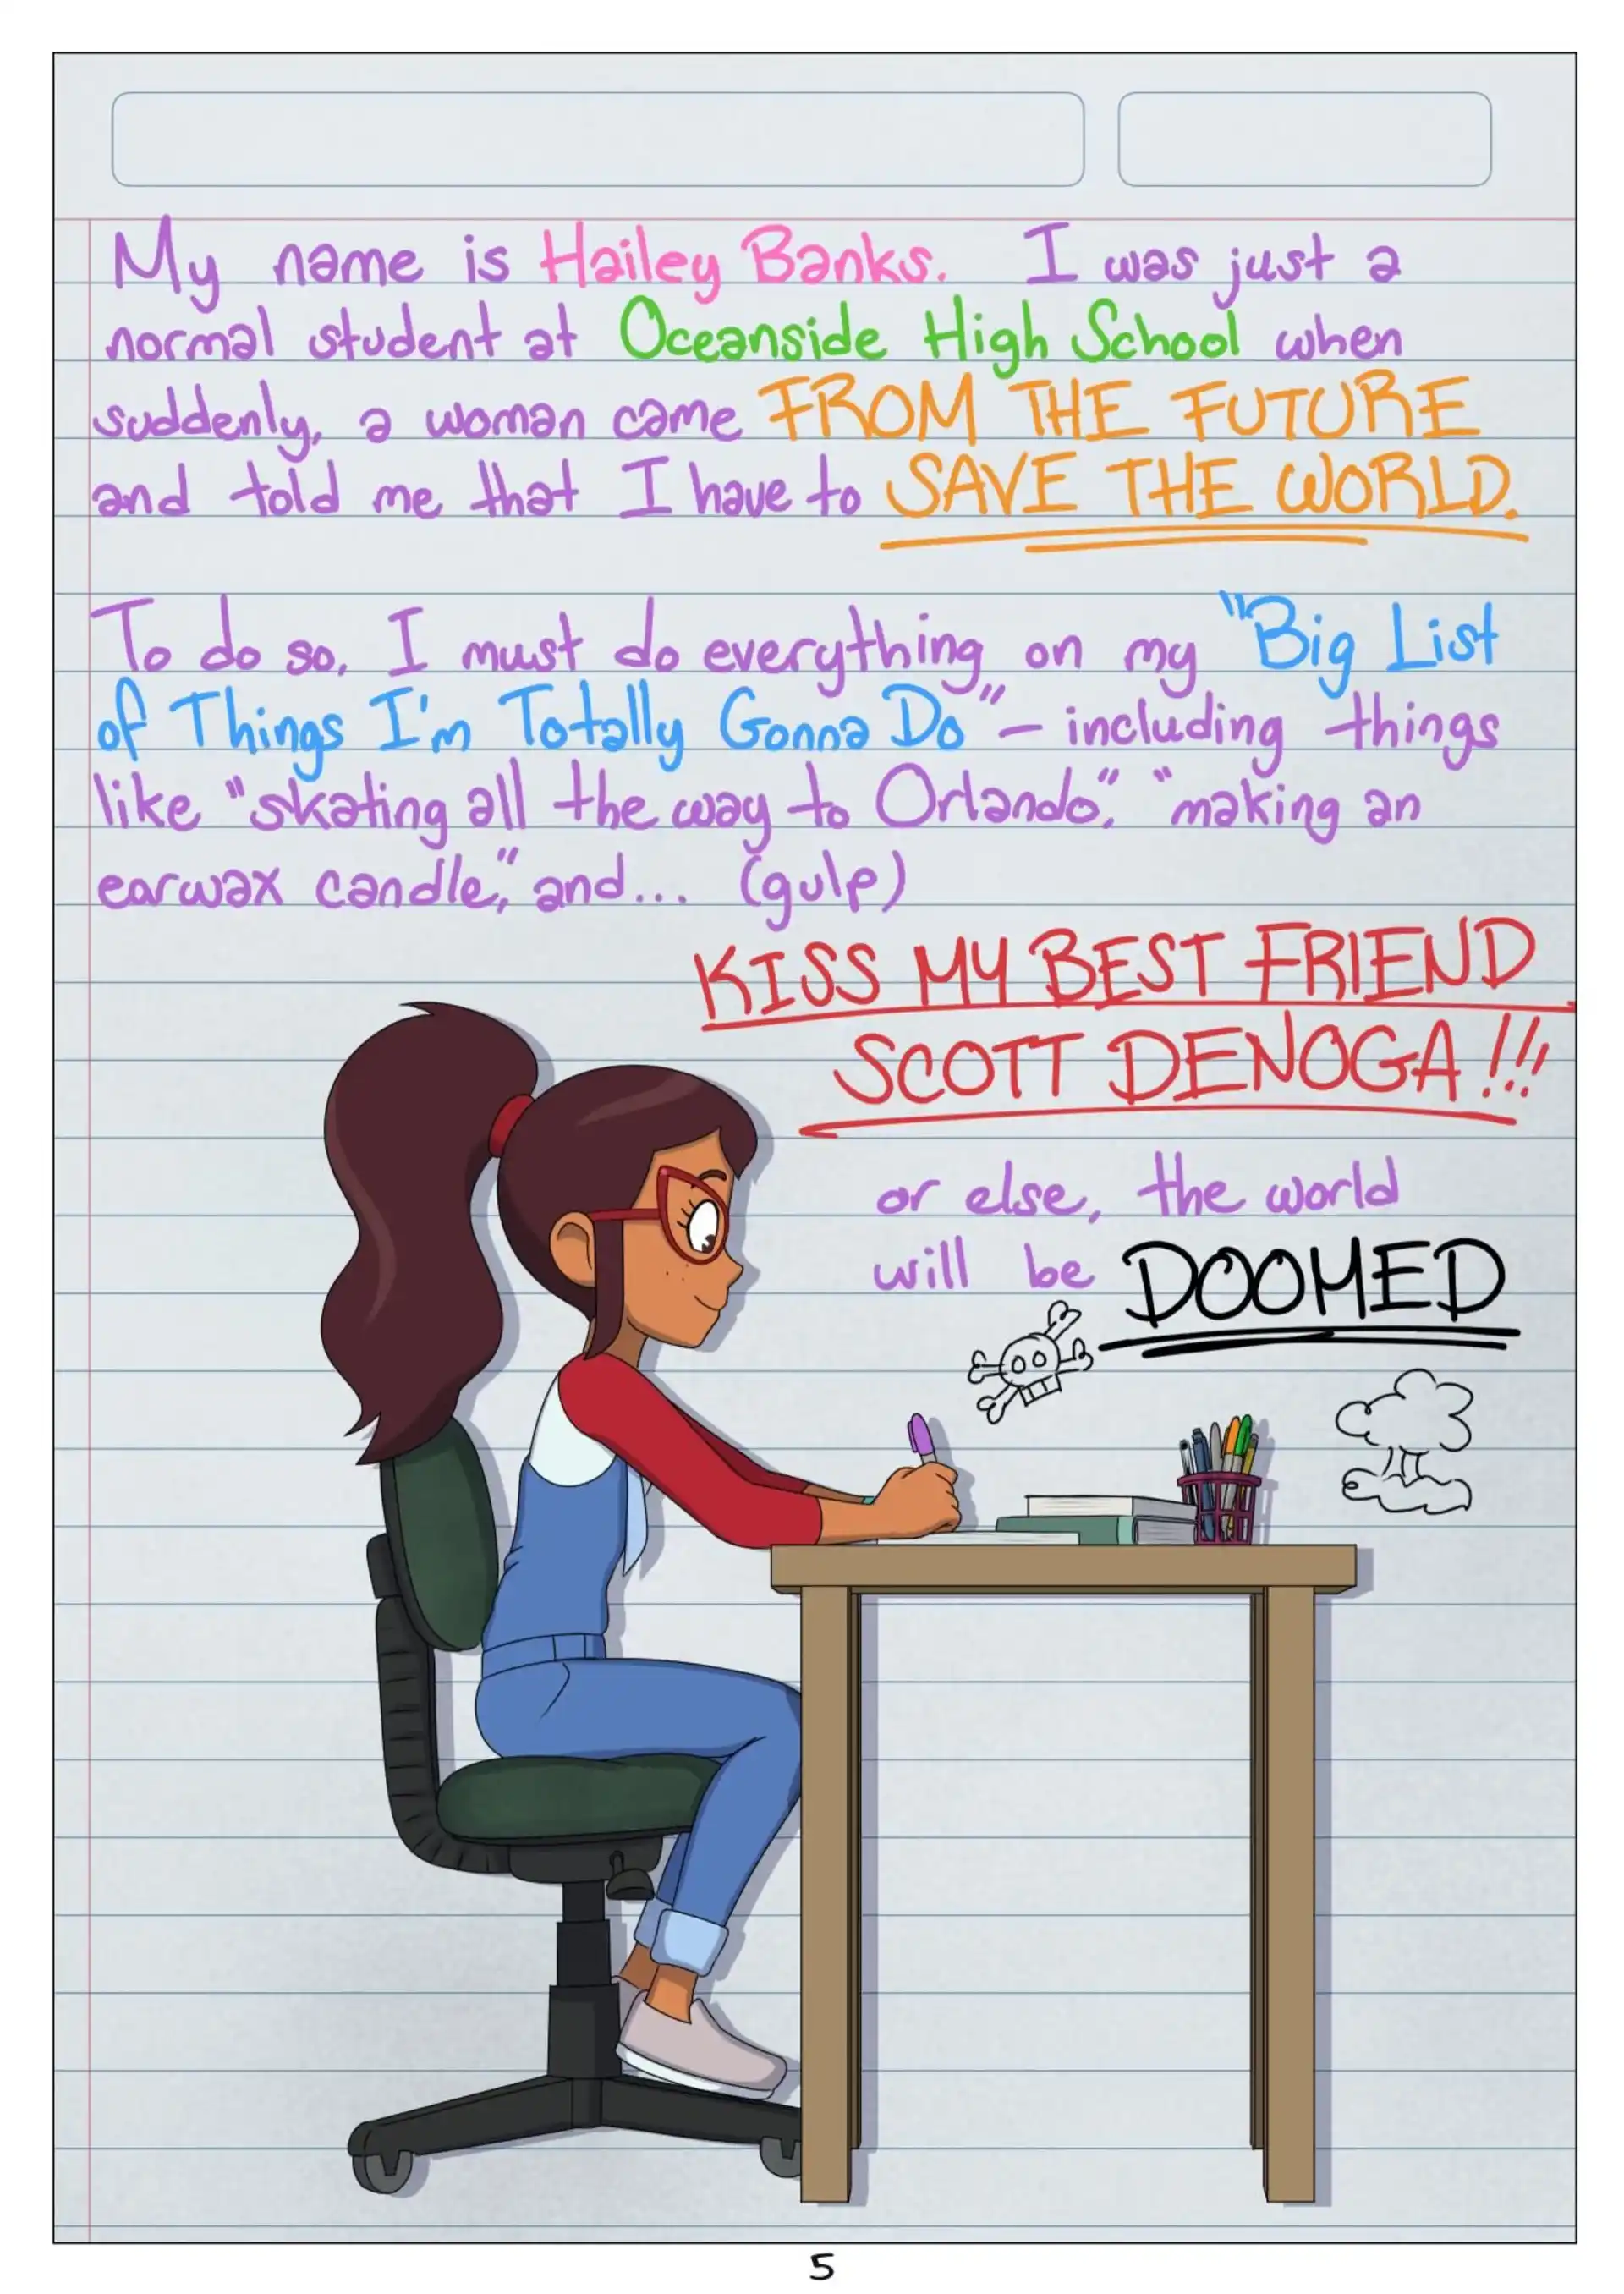 My name is Hailey Banks. I was just a
normal student at Oceanside High School when
suddenly, a woman came FROM THE FUTURE
and told me that I have to SAVE THE WORLD.
To do so, I must do everything on my "Big List
of Things I'm Totally Gonna Do" – including things
like "skating all the way to Orlando," "making an
earwax candle," and... (gulp)
KISS MY BEST FRIEND
SCOTT DENOGA!!!
or else, the world
will be DOOMED
5